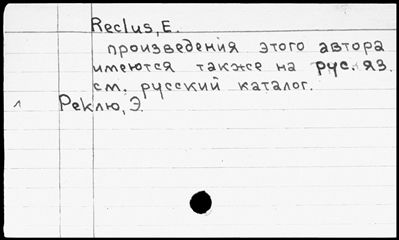 Reclus, E.
произведения этого автора
имеются также на рус. яз.
см. русский каталог.
Реклю, Э.